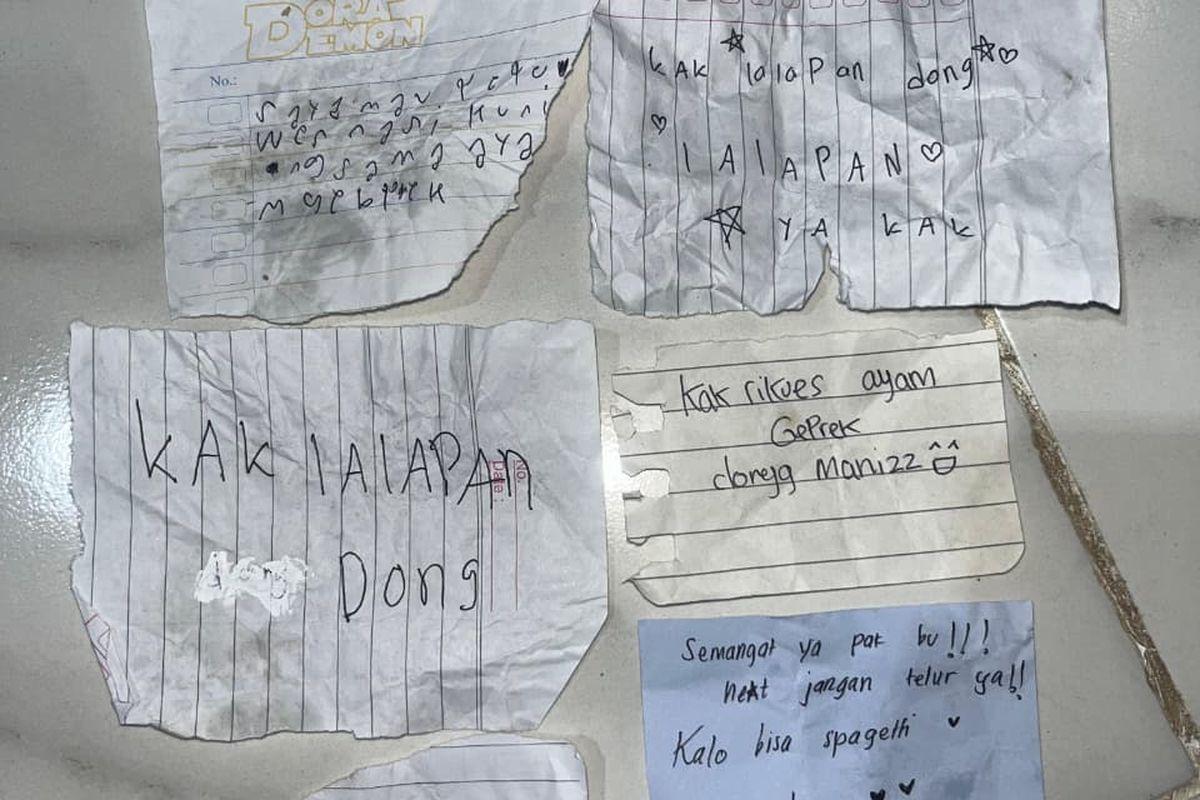 DORA
DEMON
No.:
saya mau
nasi kuni
ng sama aya
m geprek
KAK lalapan dong
lAlAPAN
YA KAK
KAK lAlAPAn
No.
Date:
Dong
Kak rikues ayam
GePrek
dongg Manizz
Semangat ya pak bu!!!
next jangan telur ya!!
Kalo bisa spagethi